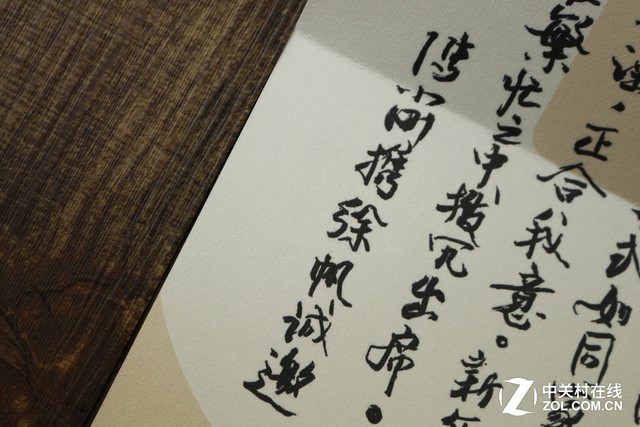 式如同
正合我意。新
繁忙之中拨冗出席。
冯小刚携徐帆诚邀
中关村在线
ZOL.COM.CN